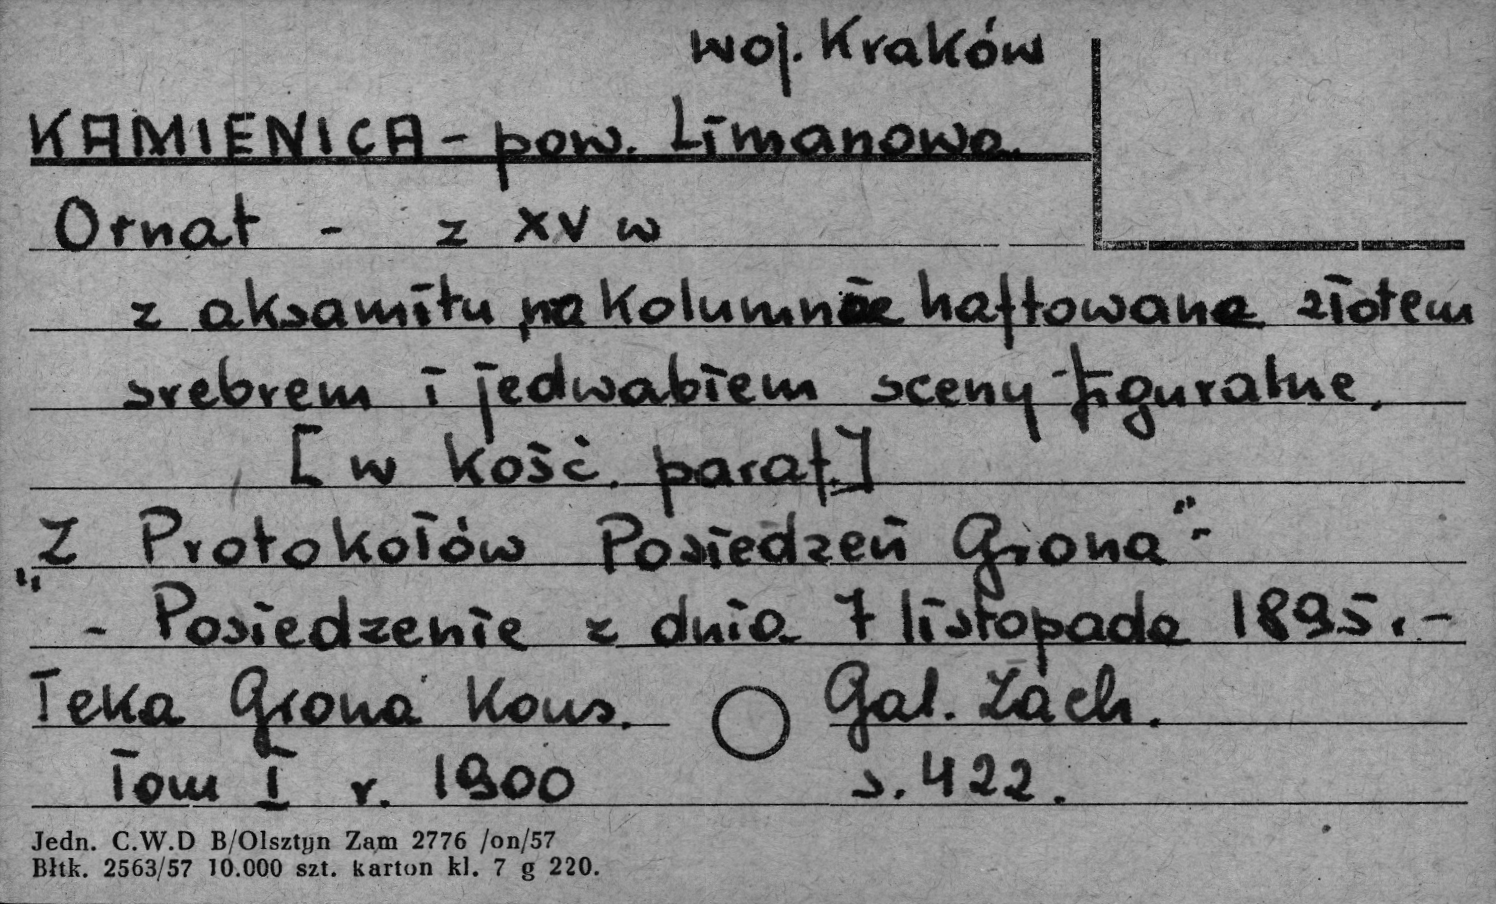 woj. Kraków
KAMIENICA - pow. Limanowa
Ornat - z XV w
z aksamitu, na kolumnie haftowane złotem
srebrem i jedwabiem sceny figuralne.
[w kość. paraf.]
"Z Protokołów Posiedzeń Grona" -
- Posiedzenie z dnia 7 listopada 1895. -
Teka Grona Kons. Gal. Zach.
Tom I r. 1900 s. 422.
Jedn. C.W.D B/Olsztyn Zam 2776 /on/57
Błtk. 2563/57 10.000 szt. karton kl. 7 g 220.